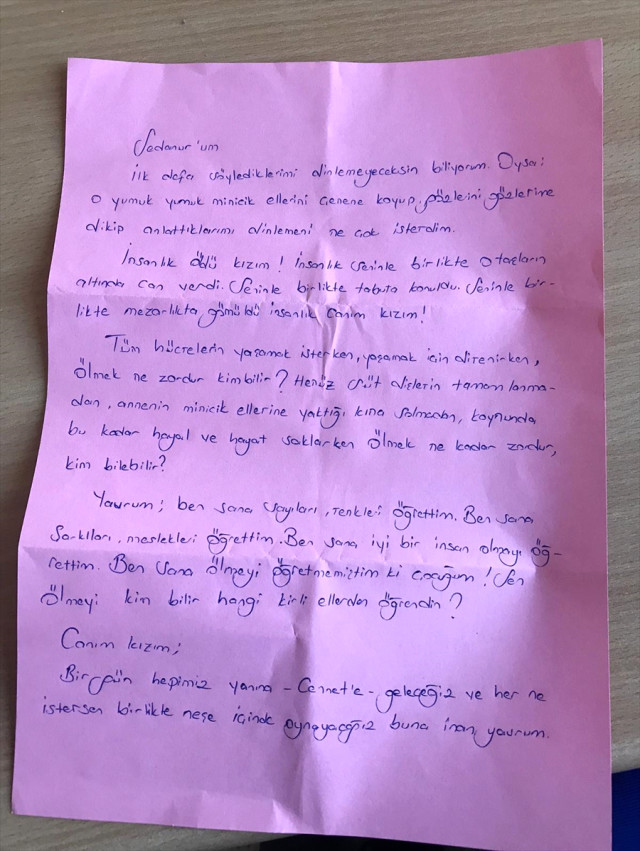 Sedanur'um
İlk defa söylediklerimi dinlemeyeceksin biliyorum. Oysa;
o yumuk yumuk minicik ellerini çenene koyup, gözlerini gözlerime
dikip anlattıklarımı dinlemeni ne çok isterdim.
İnsanlık öldü kızım! İnsanlık seninle birlikte otaçların
altında can verdi. Seninle birlikte tabuta konuldu. Seninle bir-
likte mezarlıkta gömüldü insanlık canım kızım!
Tüm hücrelerin yaşamak isterken, yaşamak için direnirken,
ölmek ne zordur kimbilir? Henüz süt dişlerin tamamlanma-
dan, annenin minicik ellerine yaktığı kına solmadan, koynunda
bu kadar hayal ve hayat saklarken ölmek ne kadar zordur,
kim bilebilir?
Yavrum; ben sana sayıları, renkleri öğrettim. Ben sana
şarkıları, meslekleri öğrettim. Ben sana iyi bir insan olmayı öğ-
rettim. Ben sana ölmeyi öğretmemiştim ki çocuğum! Sen
ölmeyi kim bilir hangi kirli ellerden öğrendin?
Canım kızım;
Bir gün hepimiz yanına - Cennet'e - geleceğiz ve her ne
istersen birlikte neşe içinde oynayacağız buna inan yavrum.